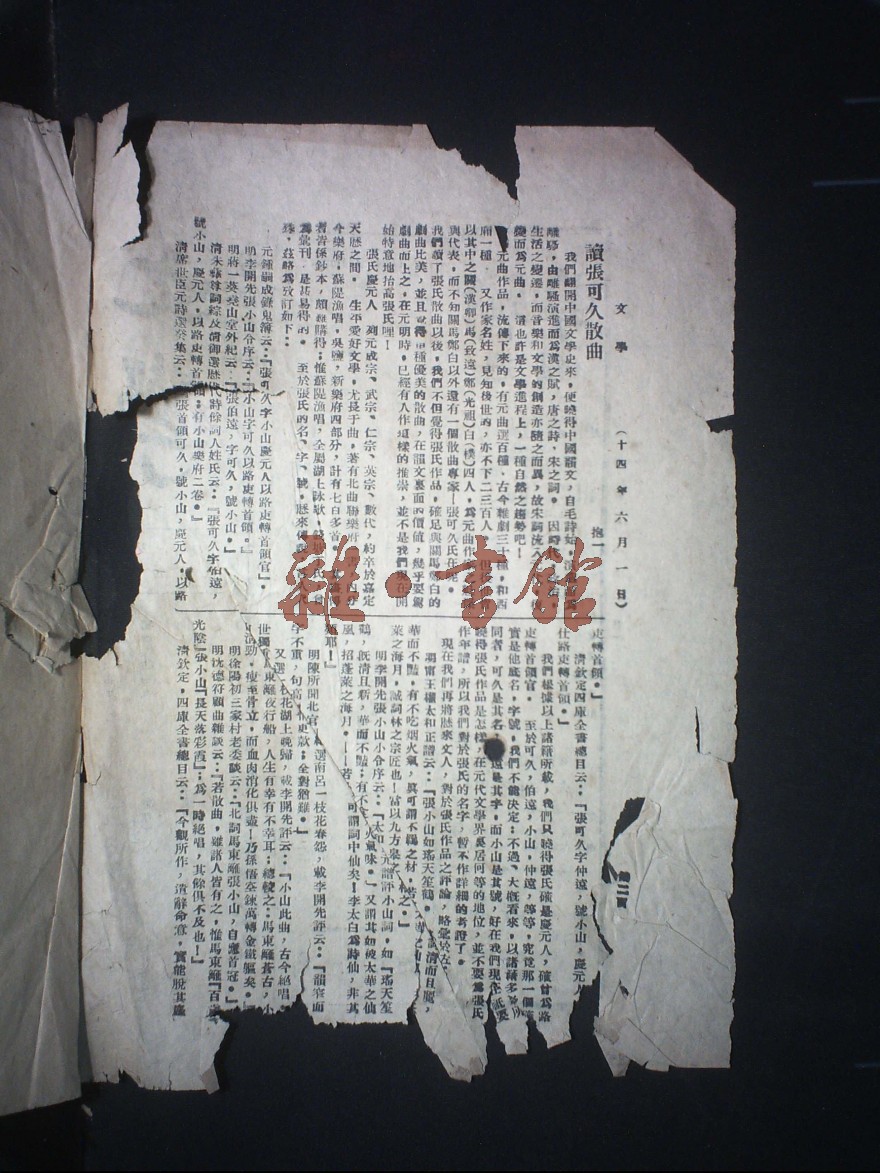 文學
（十四年六月一日）
第二頁
讀張可久散曲
抱一
我們翻開中國文學史來，便曉得中國韻文，自毛詩始，
離騷，由離騷演進而爲漢之賦，唐之詩，宋之詞。因
生活之變遷，而音樂和文學的創造亦隨之而異，故宋詞流入
變而爲元曲。這也許是文學進程上，一種自然之趨勢吧！
元曲作品，流傳下來的，有元曲選百種，古今雜劇三十種，和西
廂一種。又作家名姓，見知後世的，亦不下二三百人
以其中之關（漢卿）馬（致遠）鄭（光祖）白（樸）四人，爲元曲作
與代表，而不知關馬鄭白以外還有一個散曲專家—張可久氏在
我們讀了張氏散曲以後，我們不但覺得張氏作品，確足與關馬鄭白的
劇曲比美，並且覺得 種優美的散曲，在韻文裏面的價值，幾乎要駕
劇曲而上之，在元明時，已經有人作這樣的推崇，並不是我們現在開
始特意地抬高張氏哩！
張氏慶元人 宗，武宗，仁宗，英宗，數代，約卒於嘉定
天歷之間。生平愛好文學，尤長于曲，著有北曲聯樂府
今樂府，蘇隄漁唱，吳鹽，新樂府四部分，計有七百多首。
者皆係鈔本，頗難購得；惟蘇隄漁唱，全屬湖上詠歌，
爲彙刊，是甚易得的。至於張氏的名，字，號，歷來傳說
殊，茲略爲攷訂如下：
元鍾嗣成錄鬼簿云：『張可久字小山慶元人以路吏轉首領官。』
明李開先張小山令序云：『小山字可久以路吏轉首領。』
明蔣一葵堯山堂外紀云：『張伯遠，字可久，號小山。』
清朱彝尊詞綜及清御選歷代詩餘詞人姓氏云：『張可久字伯遠，
號小山，慶元人，以路吏轉首領 有小山樂府二卷。』
清席世臣元詩選癸集云：『張首領可久，號小山，慶元人，以路
吏轉首領。』
清欽定四庫全書總目云：『張可久字仲遠，號小山，慶元人
仕路吏轉首領。』
我們根據以上諸籍所載，我們只曉得張氏確是慶元人，確曾爲路
吏轉首領官。至於可久，伯遠，小山，仲遠，等等，究竟那一個確
實是他底名，字號，我們不能決定；不過，大概看來，以諸籍多
同者，可久是其名， 遠是其字，而小山是其號，好在我們現在祇要
曉得張氏作品是怎樣，在元代文學界裏居何等的地位，並不要爲張氏
作年譜，所以我們對於張氏的名字，暫不作詳細的考證了。
現在我們再將歷來文人，對於張氏作品之評論，略彙於左：
明甯王權太和正譜云：『張小山如瑤天笙鶴。 清而且麗，
華而不豔，有不吃烟火氣，真可謂不羈之材，若
萊之海月，誠詞林之宗匠也！當以九方皋之 相之。』
明李開先張小山小令序云：『太和 元譜評小山詞，如『瑤天笙
鶴，旣清且新，華而不豔；有不 火氣味。』又謂其如被太華之仙
風，招蓬萊之海月。——若 可謂詞中仙矣！李太白爲詩仙，非其
耶！』
明陳所聞北宮 選南呂一枝花春怨，載李開先評云：『韻窄而
字不重，句高 更欵；全對猶難。』
又選 花湖上晚歸，載李開先評云：『小山此曲，古今絕唱。
世獨 東籬夜行船，人生有幸有不幸耳；總較之：馬東籬蒼古，小
山清勁，瘦至骨立，而血肉消化俱盡！乃孫悟空鍊萬轉金鐵軀矣。』
明徐陽初三家村老委談云：『北詞馬東籬張小山，自應首冠。』
明沈德符顧曲雜談云：『若散曲，雖諸人皆有之，惟馬東籬『百歲
光陰』張小山『長天落彩霞』；爲一時絕唱，其餘俱不及也！』
清欽定，四庫全書總目云：『今觀所作，清辭命意，實能脫其塵
雜·書館